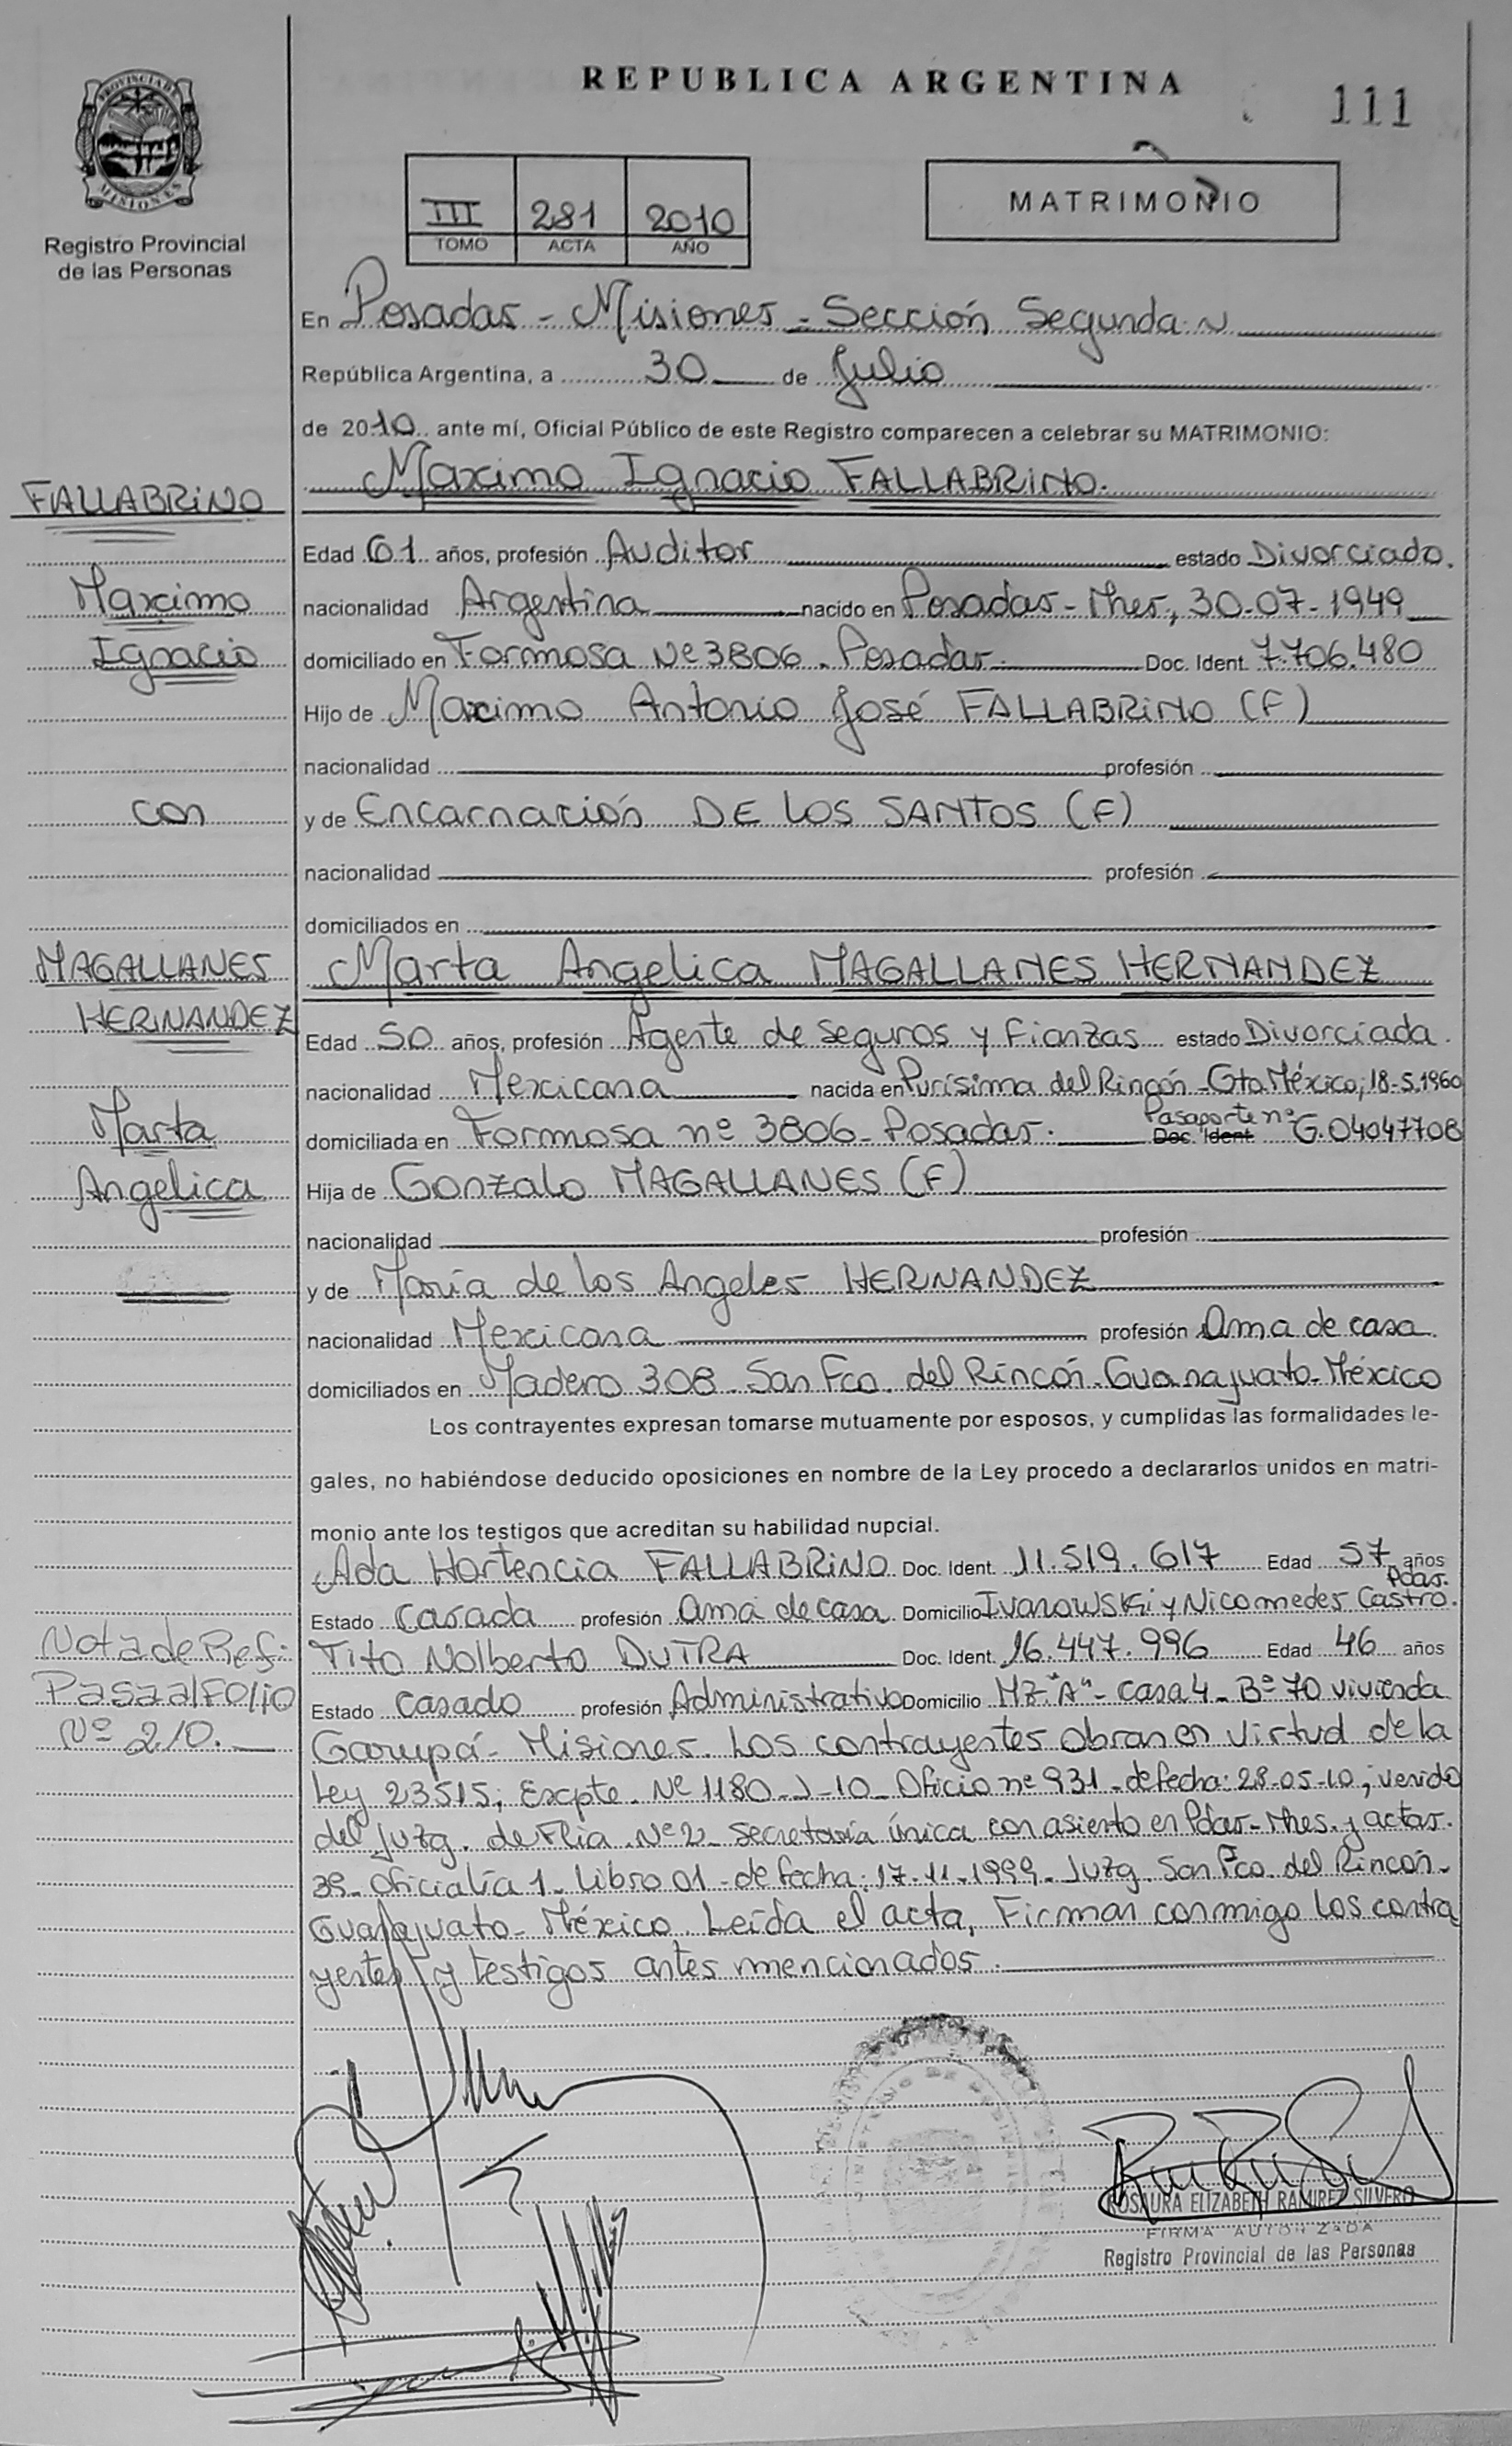 REPUBLICA ARGENTINA
111
PROVINCIA DE MISIONES
Registro Provincial
de las Personas
III 281 2010
TOMO ACTA AÑO
MATRIMONIO
En Posadas - Misiones - Sección Segunda
República Argentina, a 30 de Julio
de 2010 ante mí, Oficial Público de este Registro comparecen a celebrar su MATRIMONIO:
Maximo Ignacio FALLABRINO.
FALLABRINO
Edad 61 años, profesión Auditor estado Divorciado.
Maximo
nacionalidad Argentina nacido en Posadas - Mnes, 30-07-1949
Ignacio
domiciliado en Formosa Nº 3806 - Posadas. Doc. Ident. 7.706.480
Hijo de Maximo Antonio José FALLABRINO (F)
nacionalidad profesión
con
y de Encarnación DE LOS SANTOS (F)
nacionalidad profesión
domiciliados en
MAGALLANES
Marta Angelica MAGALLANES HERNANDEZ
HERNANDEZ
Edad 50 años, profesión Agente de Seguros y Fianzas estado Divorciada.
nacionalidad Mexicana nacida en Purísima del Rincón - Gto. México, 18-5-1960
Marta
domiciliada en Formosa nº 3806 - Posadas. Doc. Ident. Pasaporte nº G.04047708
Angelica
Hija de Gonzalo MAGALLANES (F)
nacionalidad profesión
y de María de los Angeles HERNANDEZ
nacionalidad Mexicana profesión Ama de casa.
domiciliados en Madero 308 - San Fco. del Rincón - Guanajuato - México
Los contrayentes expresan tomarse mutuamente por esposos, y cumplidas las formalidades le-
gales, no habiéndose deducido oposiciones en nombre de la Ley procedo a declararlos unidos en matri-
monio ante los testigos que acreditan su habilidad nupcial.
Ada Hortencia FALLABRINO Doc. Ident. 11.519.617 Edad 57 años
Estado Casada profesión ama de casa Domicilio Ivanowski y Nicomedes Castro. Pdas.
Nota de Ref:
Tito Nolberto DUTRA Doc. Ident. 16.447.996 Edad 46 años
Pasa al Folio
Estado Casado profesión Administrativo Domicilio MZ "A" - Casa 4 - Bº 70 vivienda
Nº 210.
Garupá - Misiones. Los contrayentes obran en virtud de la
Ley 23515, Expte. Nº 1180-J-10 - Oficio nº 931 - de fecha: 28-05-10, venido
del Juzg. de Flia Nº 2 - Secretaría única con asiento en Pdas - Mnes. y actas.
39 - Oficialía 1 - Libro 01 - de fecha: 17-11-1999 - Juzg. San Fco. del Rincón -
Guanajuato - México. Leída el acta, Firman conmigo los contra
yentes y testigos antes mencionados.
ROSAURA ELIZABETH RAMIREZ SILVERO
FIRMA AUTORIZADA
Registro Provincial de las Personas